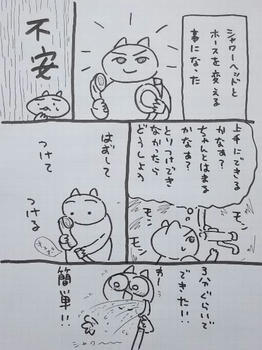 シャワーヘッドと
ホースを変える
事になった
不安
上手にできる
かなぁ?
ちゃんとはまる
かなぁ?
とりつけでき
なかったら
どうしよう
モン
モン
はずして
つけて
つける
3分ぐらいで
できたい!!
かー
簡単!!
シャワ〜〜